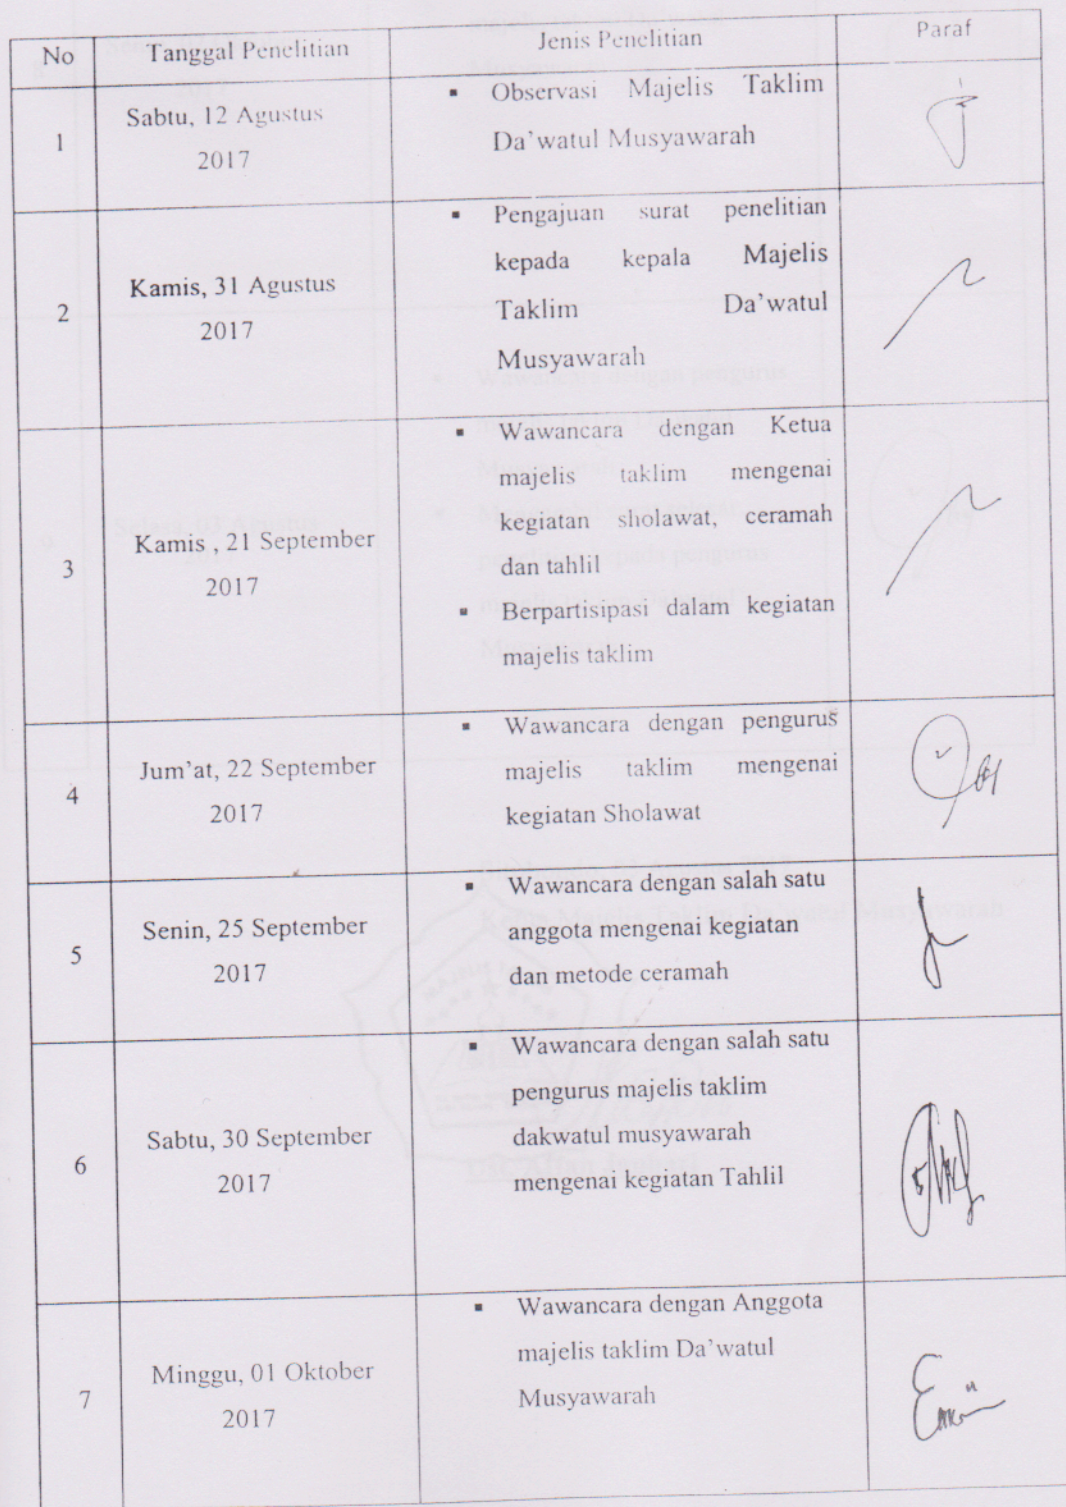 No Tanggal Penelitian Jenis Penelitian Paraf
1 Sabtu, 12 Agustus
2017
▪ Observasi Majelis Taklim
Da'watul Musyawarah
2 Kamis, 31 Agustus
2017
▪ Pengajuan surat penelitian
kepada kepala Majelis
Taklim Da'watul
Musyawarah
3 Kamis , 21 September
2017
▪ Wawancara dengan Ketua
majelis taklim mengenai
kegiatan sholawat, ceramah
dan tahlil
▪ Berpartisipasi dalam kegiatan
majelis taklim
4 Jum'at, 22 September
2017
▪ Wawancara dengan pengurus
majelis taklim mengenai
kegiatan Sholawat
5 Senin, 25 September
2017
▪ Wawancara dengan salah satu
anggota mengenai kegiatan
dan metode ceramah
6 Sabtu, 30 September
2017
▪ Wawancara dengan salah satu
pengurus majelis taklim
dakwatul musyawarah
mengenai kegiatan Tahlil
7 Minggu, 01 Oktober
2017
▪ Wawancara dengan Anggota
majelis taklim Da'watul
Musyawarah